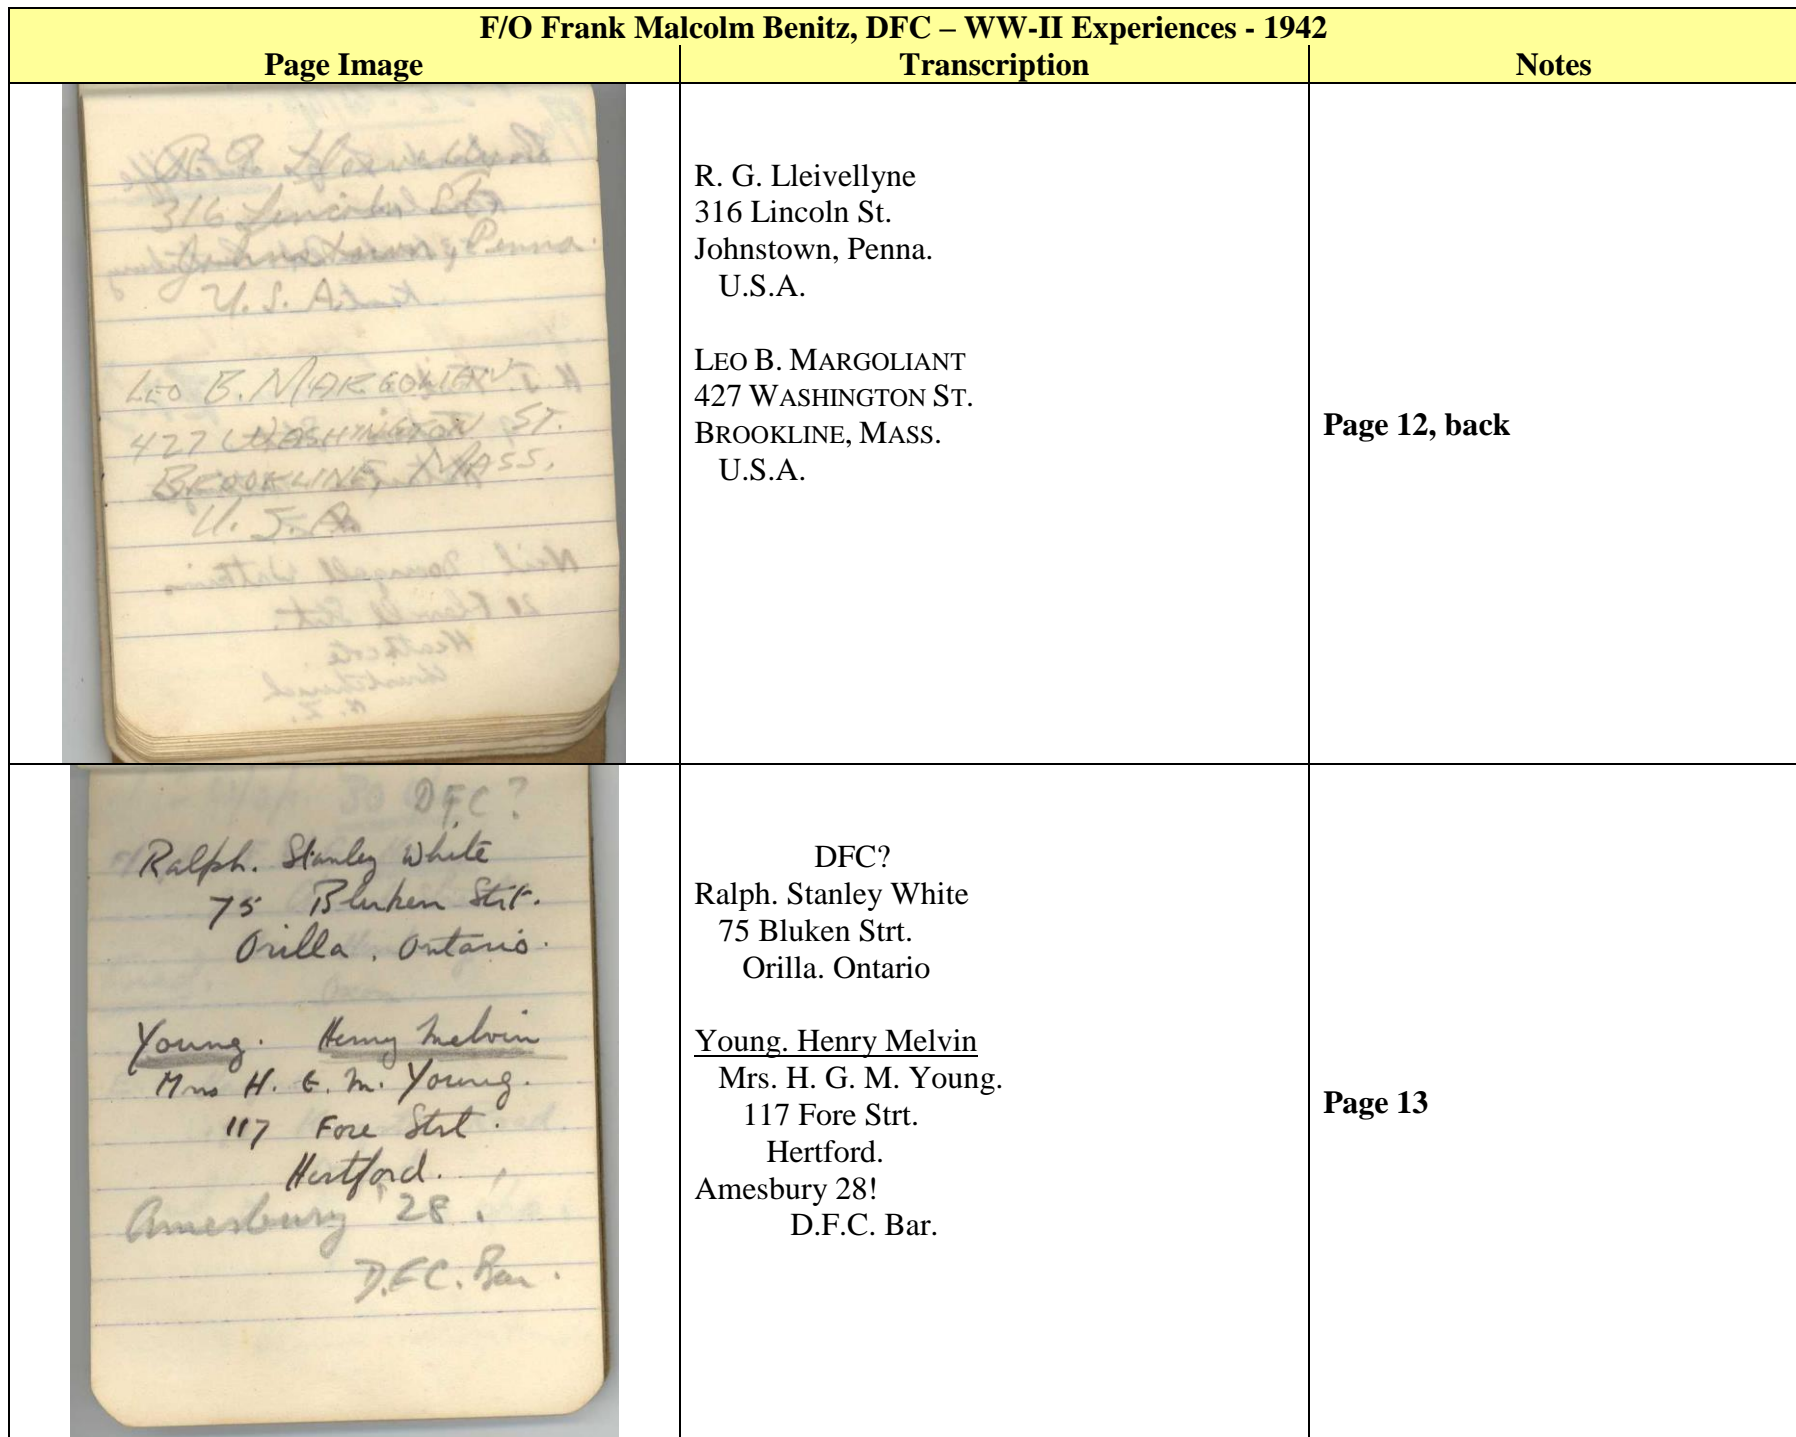 F/O Frank Malcolm Benitz, DFC – WW-II Experiences - 1942
Page Image
Transcription
Notes
316 Lincoln St.
Johnstown, Penna.
U.S.A.
LEO B. MARGOLIEN
427 WASHINGTON ST.
BROOKLINE, MASS.
U.S.A.
R. G. Lleivellyne
316 Lincoln St.
Johnstown, Penna.
U.S.A.
LEO B. MARGOLIANT
427 WASHINGTON ST.
BROOKLINE, MASS.
U.S.A.
Page 12, back
DFC?
Ralph. Stanley White
75 Strt.
Orilla. Ontario.
Young. Henry Melvin
Mrs H. G. M. Young.
117 Fore Strt.
Hertford.
Amesbury 28!
D.F.C. Bar.
DFC?
Ralph. Stanley White
75 Bluken Strt.
Orilla. Ontario
Young. Henry Melvin
Mrs. H. G. M. Young.
117 Fore Strt.
Hertford.
Amesbury 28!
D.F.C. Bar.
Page 13